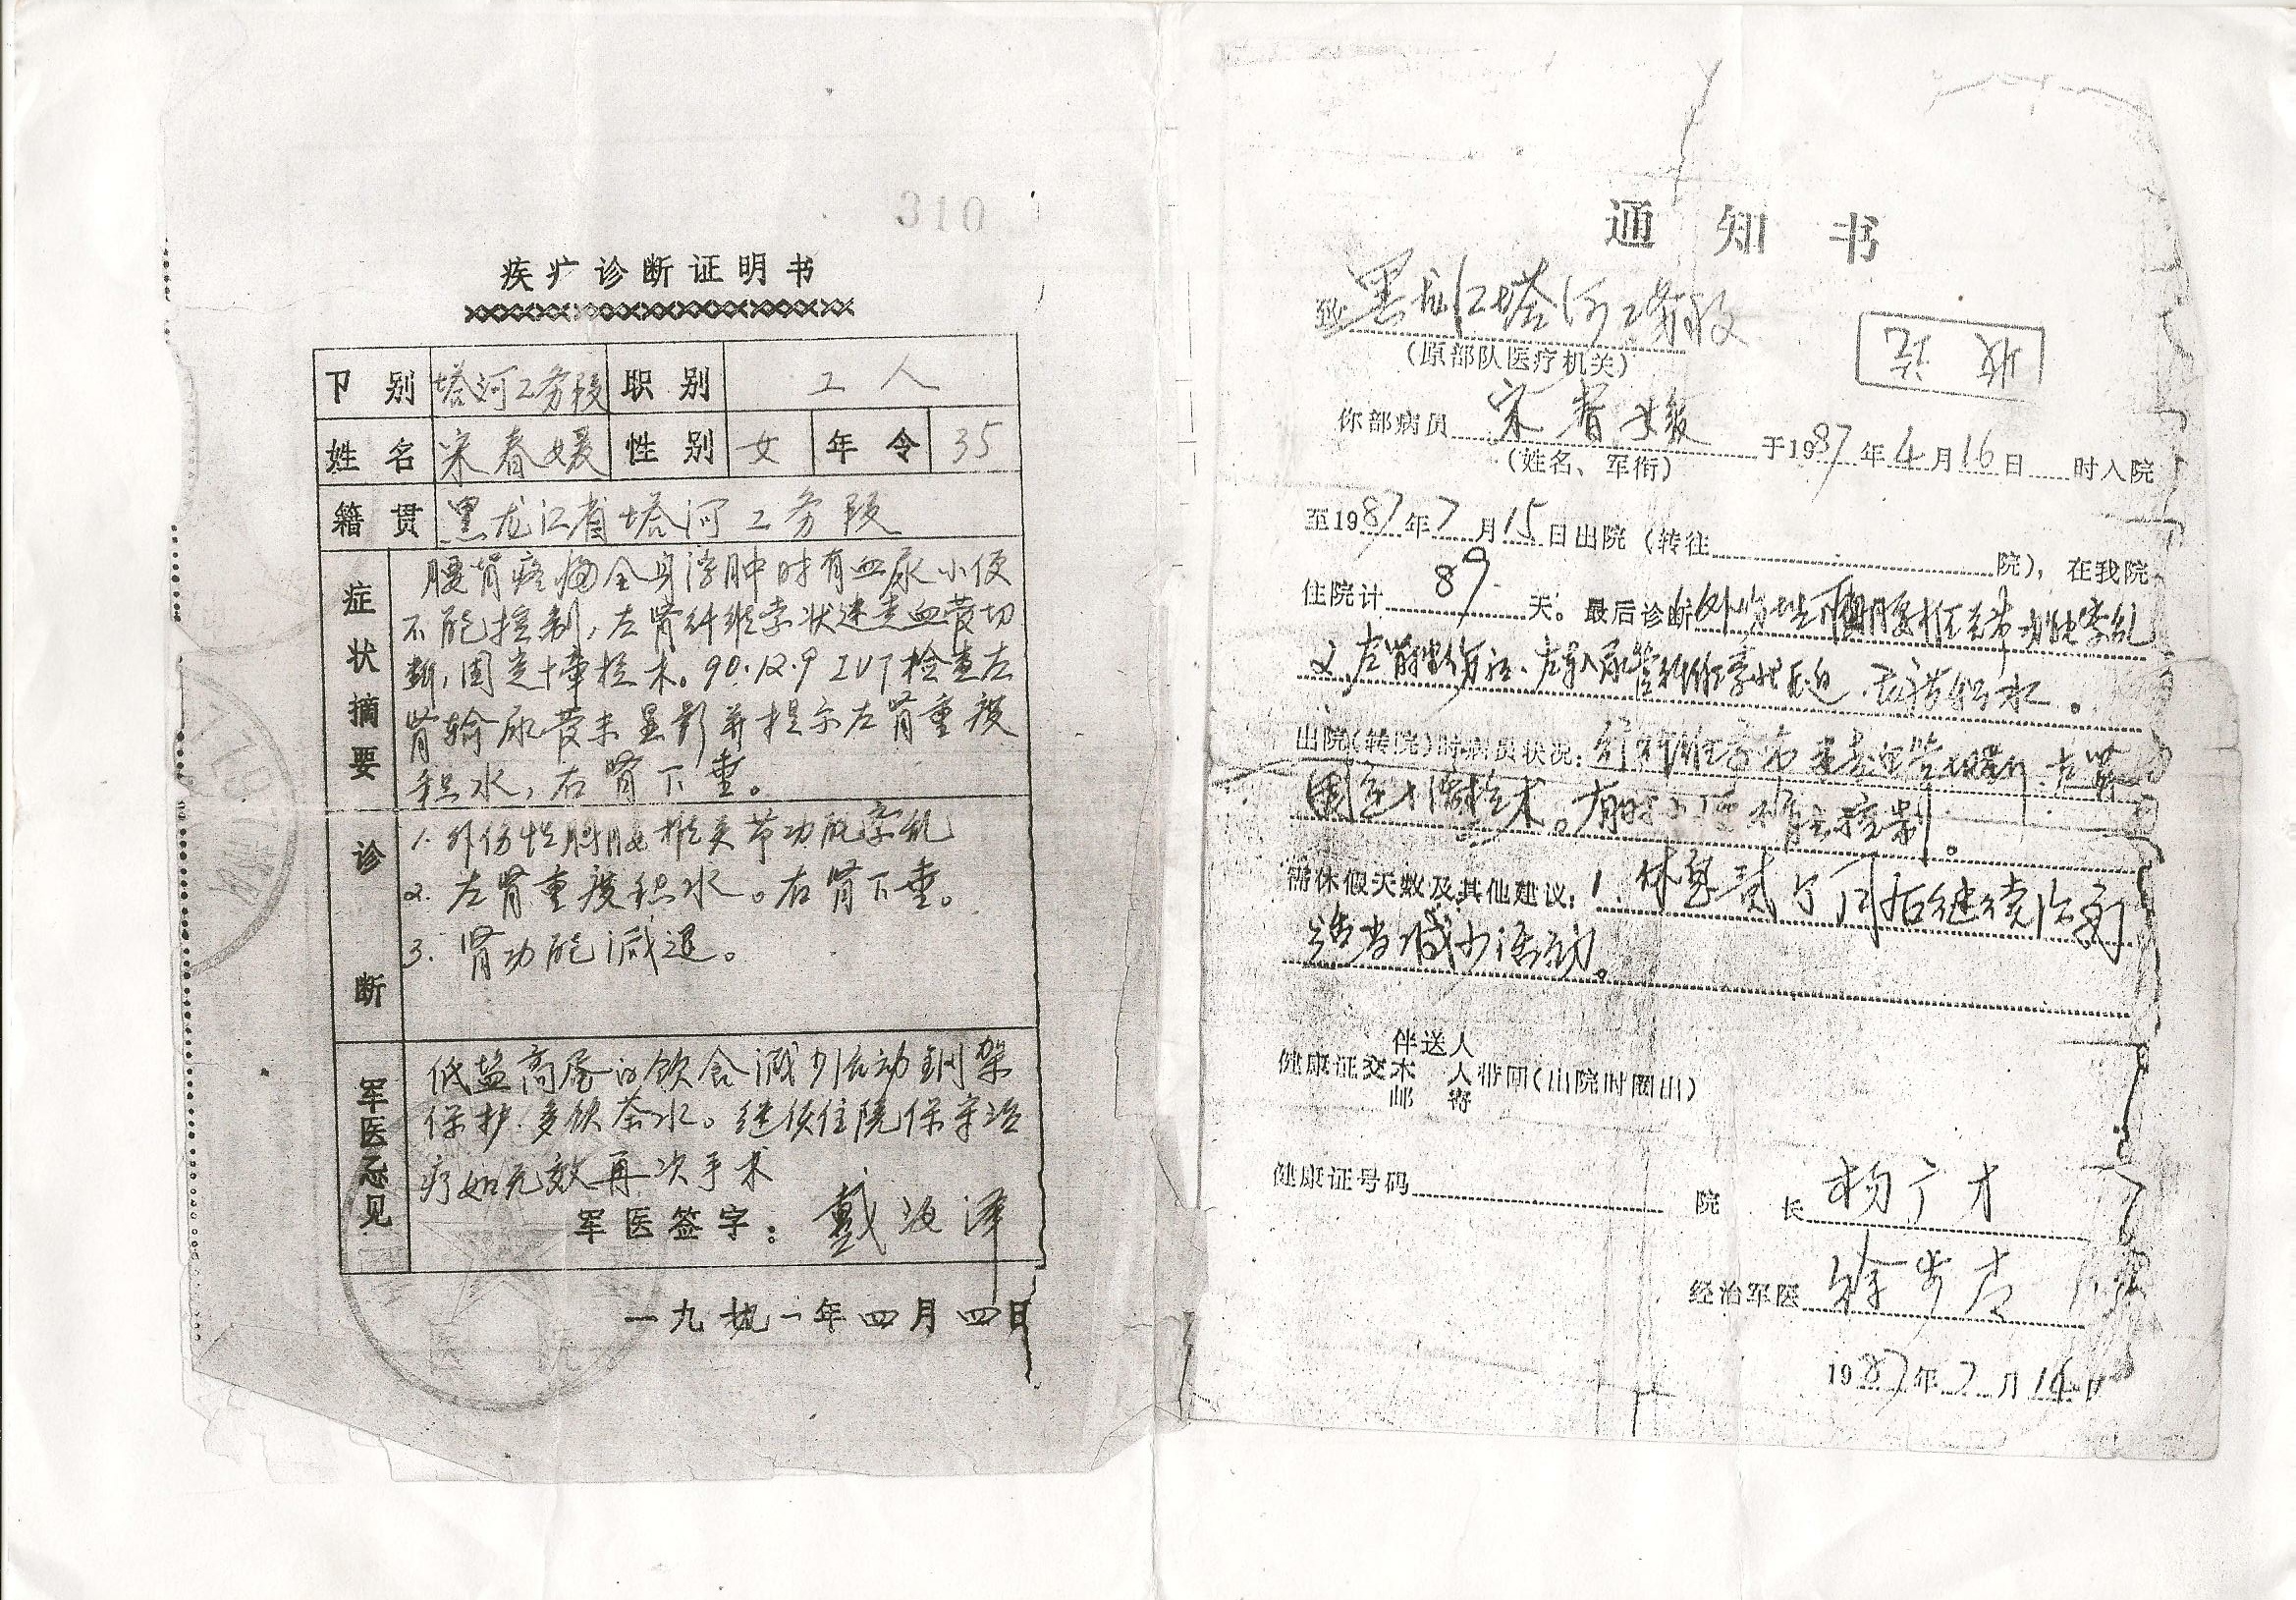 310
疾疒诊断证明书
卩别 塔河工务段 职别 工人
姓名 宋春媛 性别 女 年令 35
籍贯 黑龙江省塔河工务段
症状摘要
腰肾疼痛全身浮肿时有血尿小便
不能控制,左肾纤维素状迷走血管切
断,固定+ 术。90.12.9 IVP检查左
肾输尿管未显影并提示左肾重度
积水,右肾下垂。
诊断
1.外伤性胸腰椎关节功能紊乱
2.左肾重度积水。右肾下垂。
3.肾功能减退。
军医意见
低盐高蛋白饮食减少活动钢架
保护.多饮茶水。继续住院保守治
疗如无效再次手术
军医签字:戴 泽
一九九一年四月四日
通知书
致黑龙江塔河工务段
(原部队医疗机关)
收讫
你部病员 宋春媛 于1987年4月16日 时入院
(姓名、军衔)
至1987年7月15日出院(转往 院),在我院
住院计 89 天。最后诊断 外伤性 胸腰椎关节功能紊乱
2,左肾 伤 、左输尿管纤维素性压迫. 积水。
出院(转院)时病员状况: 纤维素 迷走血管切断.左肾
固定+ 术。有时小便不能控制。
需休假天数及其他建议:1.休息 个月后继续治疗
适当减少活动。
伴送人
健康证交本 人带回(出院时圈出)
邮 寄
健康证号码 院 长 杨广才
经治军医 徐
1987年7月 日